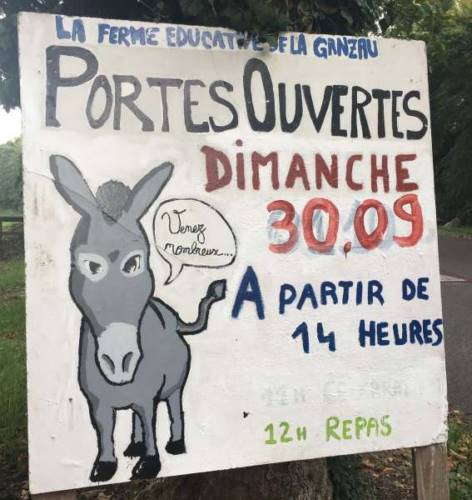 LA FERME EDUCATIVE DE LA GANZAU
PORTES OUVERTES
DIMANCHE
30.09
Venez
nombreux...
A PARTIR DE
14 HEURES
12H REPAS